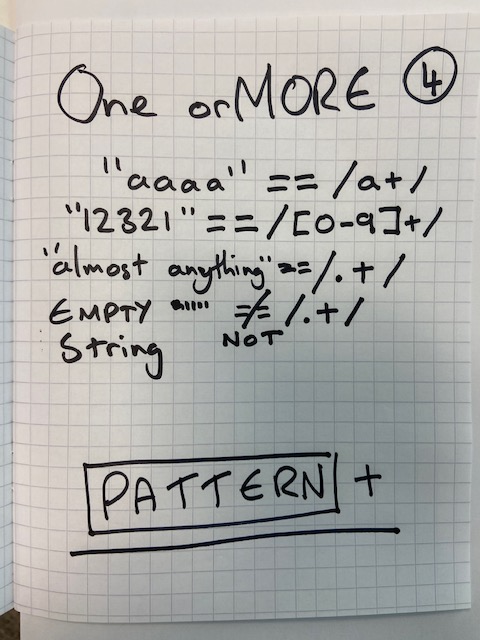 One or MORE 4
"aaaa" == /a+/
"12321" == /[0-9]+/
"almost anything" == /.+/
EMPTY "" ≠ /.+/
String NOT
PATTERN +